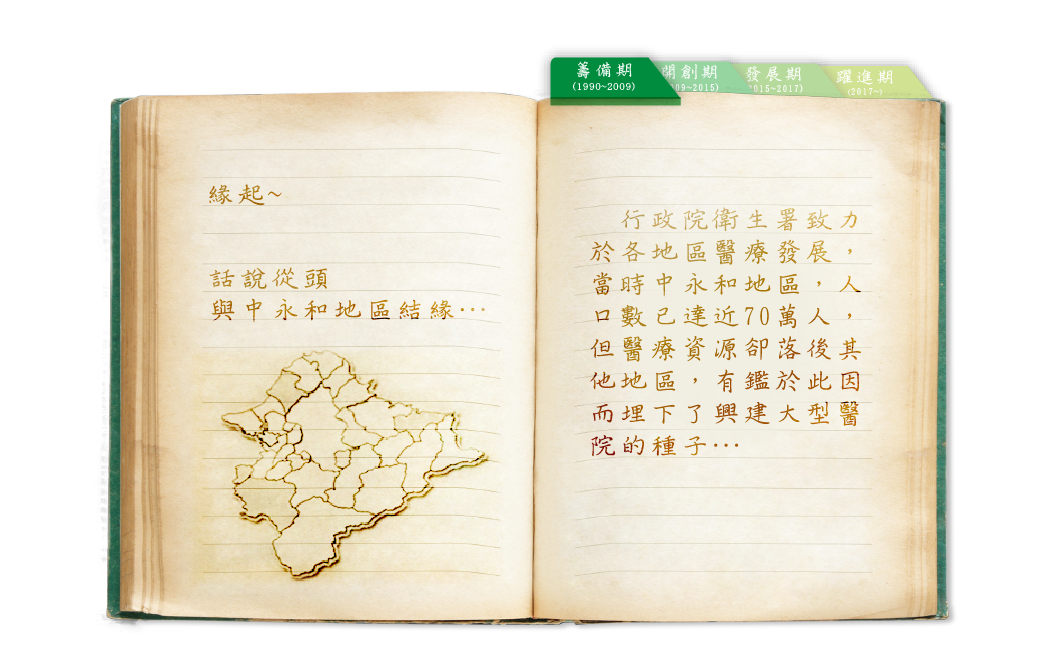 籌備期
(1990~2009)
開創期
09~2015)
發展期
015~2017)
躍進期
(2017~)
緣起~
話說從頭
與中永和地區結緣…
行政院衛生署致力
於各地區醫療發展，
當時中永和地區，人
口數已達近70萬人，
但醫療資源卻落後其
他地區，有鑑於此因
而埋下了興建大型醫
院的種子…